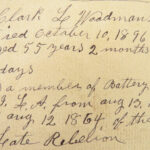 Clark L Woodman
ied October 10, 1896
ged 55 years 2 months
days
a member of Battery
L. A. from aug 13,
aug 12 1864 of the
late Rebelion